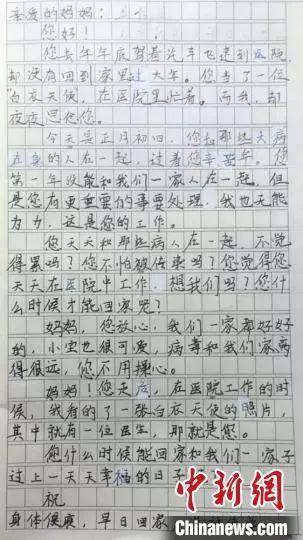 亲爱的妈妈：
您好！
您去年年底驾着汽车飞速到医院，
却没有回到家里过大年。您当了一位
“白衣天使，在医院里忙着。而我，却
夜夜思念您。
今天是正月初四，您和那些大病
在身的人在一起，过着您幸苦年。您
第一年没能和我们一家人在一起。但
是您有更重要的事要处理，我也无能
为力，这是您的工作。
您天天和那些病人在一起，不觉
得累吗？您不怕被传来吗？您觉得您
天天在医院中工作，想我们吗？您什
么时候才能回家觉？
妈妈，您放心，我们一家都好好
的，小宝也很可爱，病毒和我们家离
得很远，您不用操心。
妈妈！您走后，在医院工作的时
候，我看的了一张白衣天使的照片，
其中就有一位医生，那就是您。
您什么时候能回家和我们一家子
过上一天天幸福的日子
祝
身体健康，早日回家
中新网
www.chinanews.com